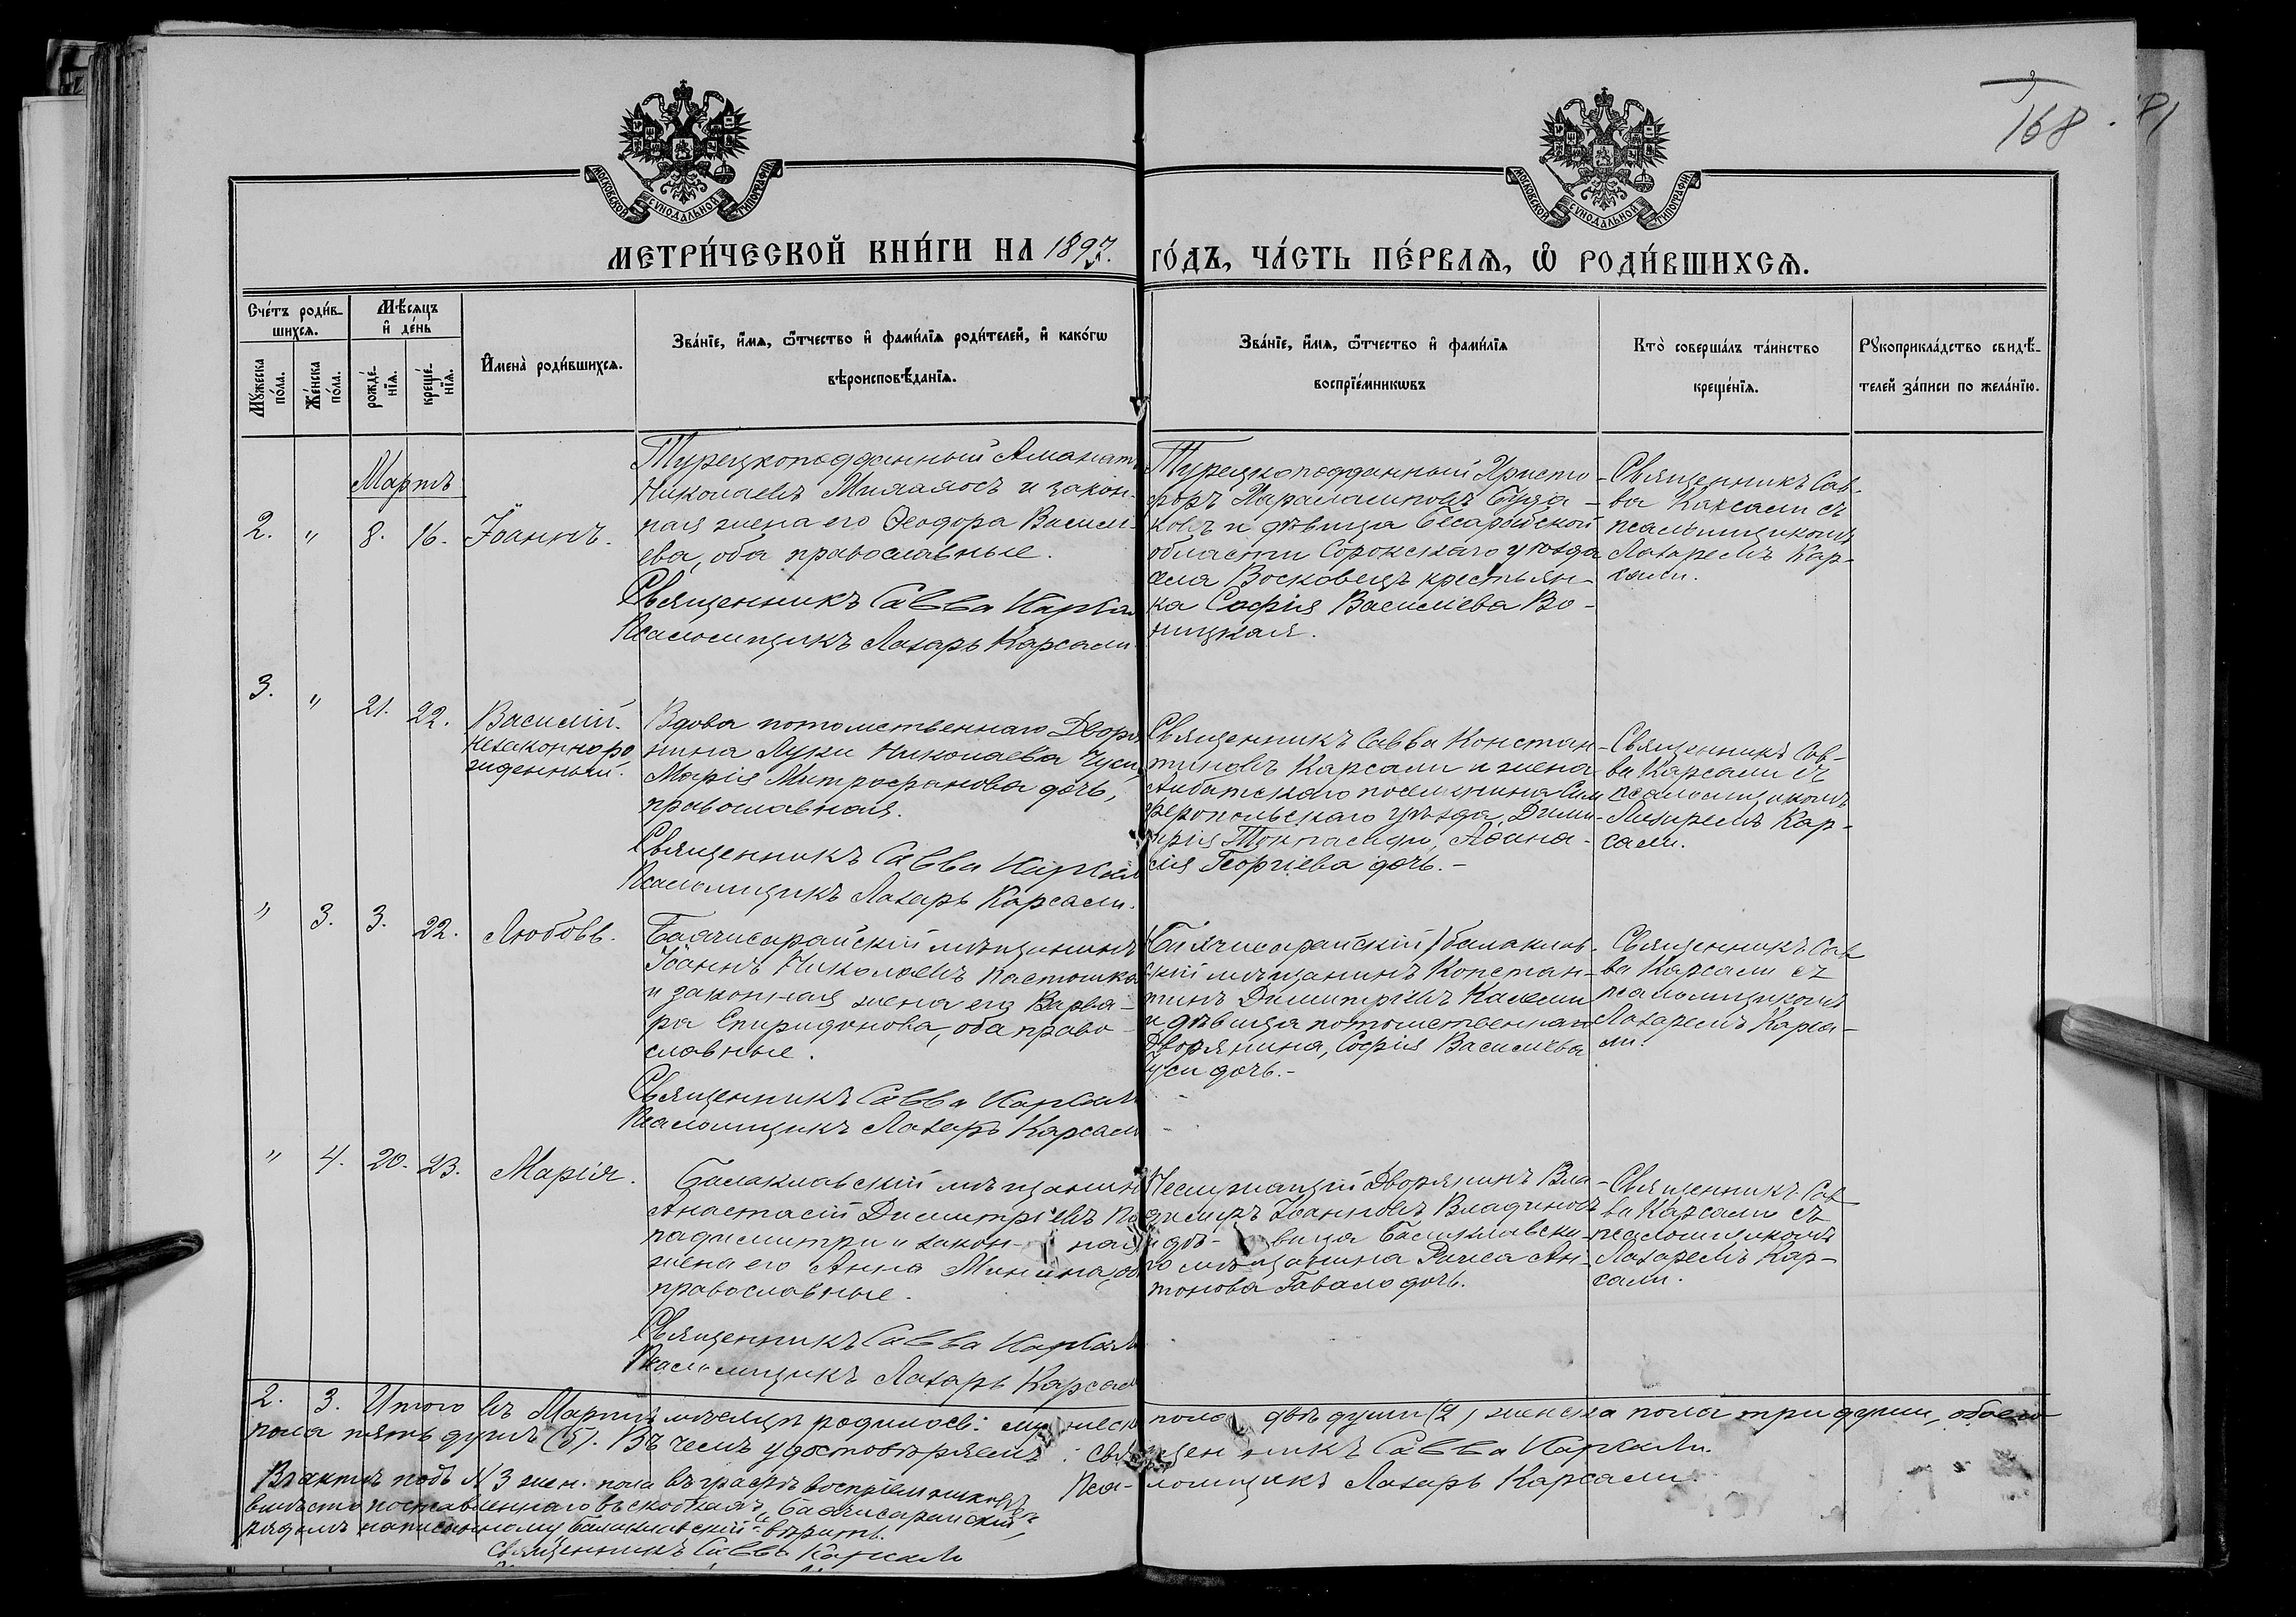 168
81
МОСКОВСКОЙ СѴНОДАЛЬНОЙ ТИПОГРАФІИ
МОСКОВСКОЙ СѴНОДАЛЬНОЙ ТИПОГРАФІИ
МЕТРИ́ЧЕСКОЙ КНИ́ГИ НА 1897. ГО́ДЪ, ЧА́СТЬ ПЕ́РВАѦ, Ѽ РОДИ́ВШИХСѦ.
Сче́тъ роди́в-
шихсѧ.
Мꙋжеска по́ла.
Же́нска по́ла.
Мѣ́сѧцъ
и҆ де́нь
рожде́-
нїѧ.
креще́-
нїѧ.
И҆мена̀ роди́вшихсѧ.
Зва́нїе, и҆́мѧ, ѻ҆́тчество и҆ фами́лїѧ роди́телей, и҆ како́гѡ
вѣроисповѣ́данїѧ.
Зва́нїе, и҆́мѧ, ѻ҆́тчество и҆ фами́лїѧ
воспрїе́мникѡвъ
Кто̀ соверша́лъ та́инство
креще́нїѧ.
Рꙋкоприкла́дство свидѣ́-
телей за́писи по жела́нїю.
Мартъ
2. " 8. 16. Іоаннъ.
Турецкоподданный Аманатъ
Николаевъ Милаяосъ и закон-
ная жена его Ѳеодора Василі-
ева, оба православные.
Священникъ Савва Карсали
Псаломщикъ Лазарь Карсали.
Турецкоподданный Христо-
форъ Харалампіевъ Буда-
ковъ и дѣвица Бесарабской
области Сорокскаго уѣзда
села Восковецъ крестьян-
ка Софія Василіева Во-
ницкая.
Священникъ Сав-
ва Карсали съ
псаломщикомъ
Лазаремъ Кар-
сали.
3. " 21. 22. Василій.
незаконноро
жденный.
Вдова потомственнаго Дворя
нина Луки Николаева Чуси,
Марія Митрофанова дочь,
православная.
Священникъ Савва Карсали
Псаломщикъ Лазарь Карсали.
Священникъ Савва Констан-
тиновъ Карсали и жена
Аибатскаго поселянина Сим
феропольскаго уѣзда, Дими-
трія Топпалиди, Аѳана-
сія Георгіева дочь.-
Священникъ Сав-
ва Карсали съ
псаломщикомъ
Лазаремъ Кар-
сали.
" 3. 3. 22. Любовь.
Бахчисарайскій мѣщанинъ
Іоаннъ Николаевъ Пастошка
и законная жена его Варва-
ра Спиридонова, оба право-
славные.
Священникъ Савва Карсали
Псаломщикъ Лазарь Карсали
(Бахчисарайскій) балаклав-
скій мѣщанинъ Констан-
тинъ Димитріевъ Калеми
и дѣвица потомственнаго
Дворянина, Софія Василіева
Чуси дочь.-
Священникъ Сав
ва Карсали съ
псаломщикомъ
Лазаремъ Карса-
ли.
" 4. 20. 23. Марія.
Балаклавскій мѣщанинъ
Анастасій Димитріевъ Па
падимитри и закон- ная
жена его Анна Минина, оба
православные.
Священникъ Савва Карсали
Псаломщикъ Лазарь Карсали
Неслужащій Дворянинъ Вла-
димиръ Іоанновъ Владиновъ
и дѣ- вица Балаклавска-
го мѣщанина Раиса Ан-
тонова Гавало дочь.
Священникъ Сав
ва Карсали съ
псаломщикомъ
Лазаремъ Кар-
сали.
2. 3. Итого въ Мартѣ мѣсяцѣ родилось: мужеска пола двѣ души (2), женска пола три души, обоего
пола пять душъ (5). Въ чемъ удостовѣряемъ: священникъ Савва Карсали.
Псаломщикъ Лазарь Карсали.
В актѣ подъ N 3 жен. пола въ графѣ воспріемниковъ
вмѣсто поставленнаго въ скобкахъ "Бахчисарайскій"
рядомъ написанному "балаклавскій" вѣрить.
священникъ Савва Карсали